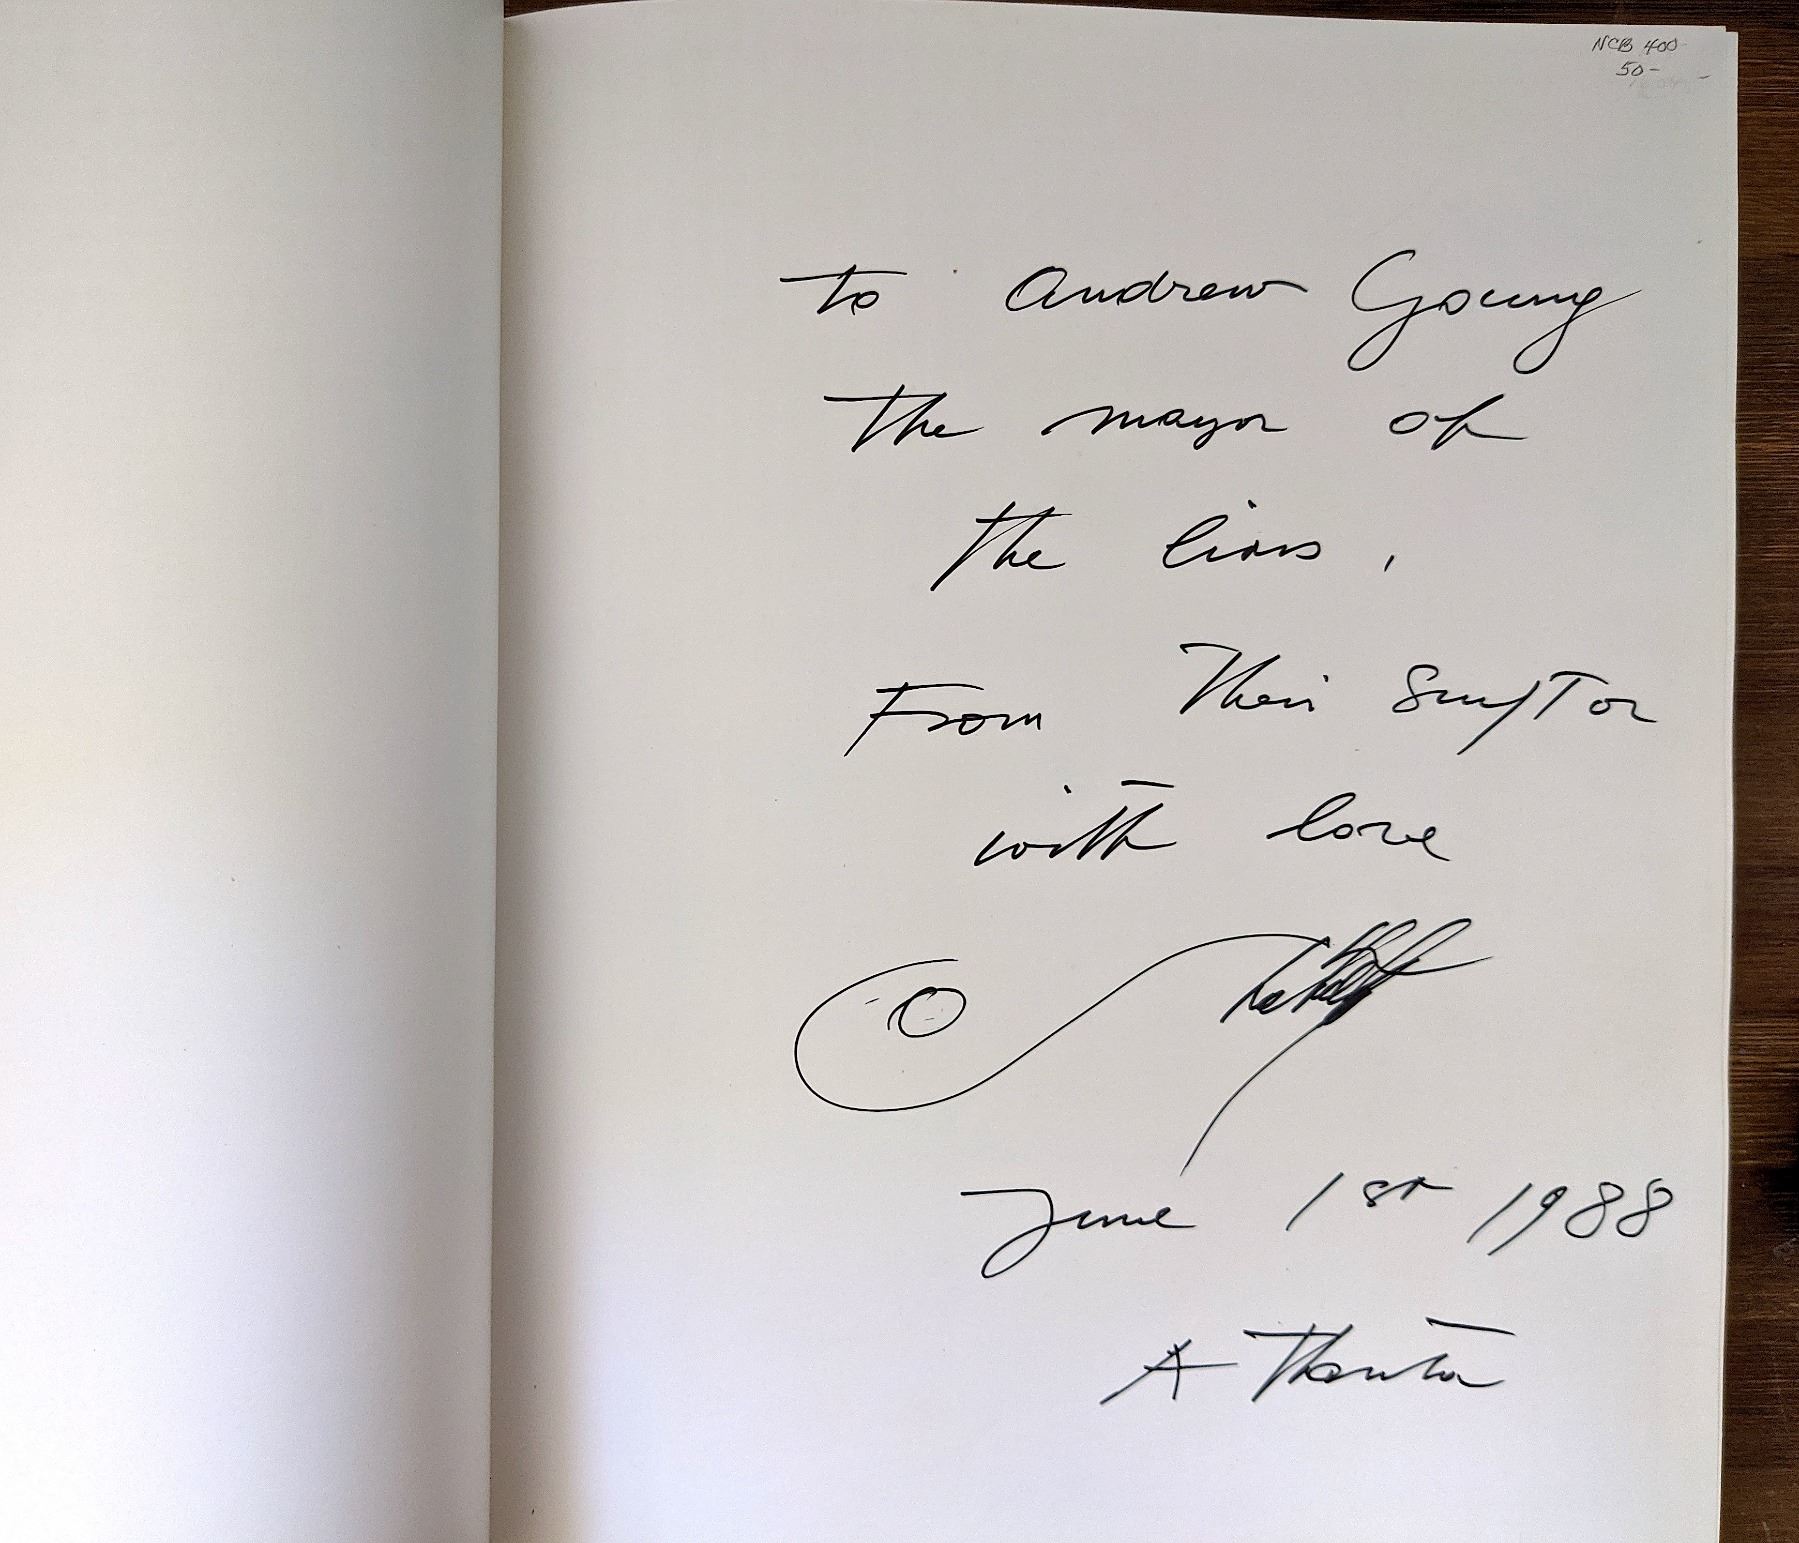 NCB 400-
50-
to Andrew Young
the mayor of
the lions,
From Their Sculptor
with love
June 1st 1988
Atlanta